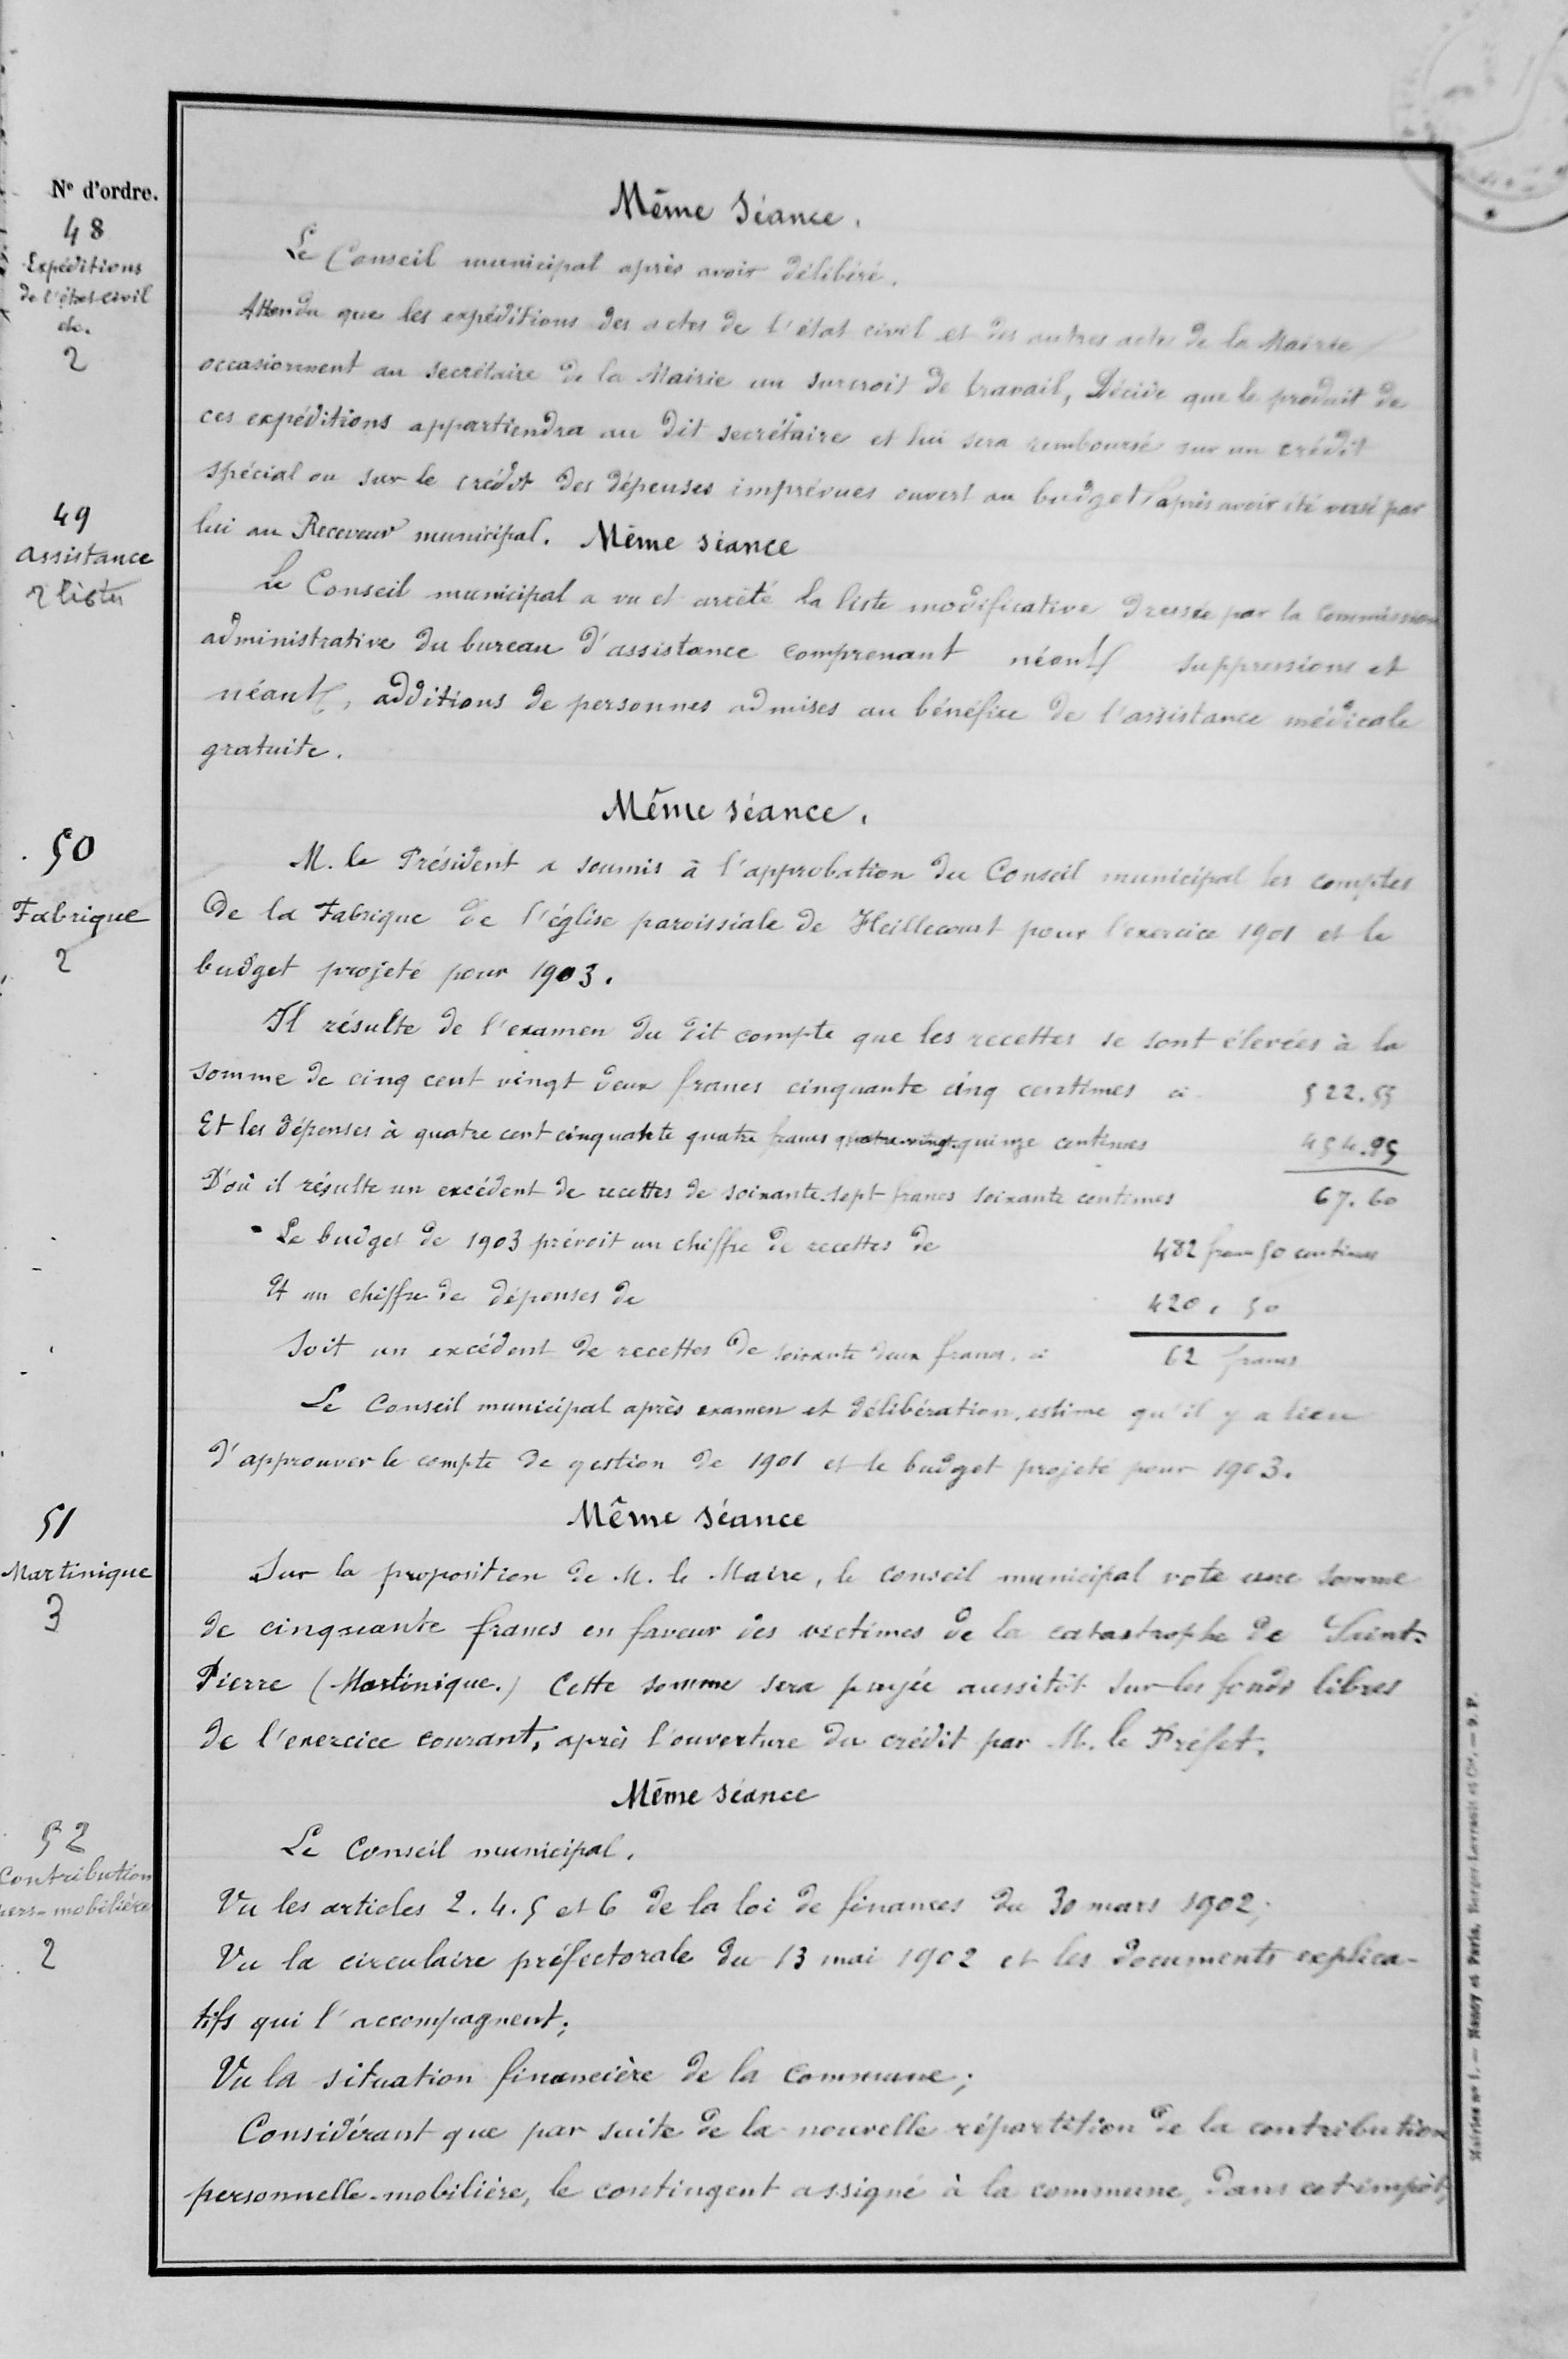 N° d'ordre.
48
Expéditions
de l'état civil
etc.
2
Même Séance.
Le Conseil municipal après avoir délibéré.
Attendu que les expéditions des actes de l'état civil et des autres actes de la Mairie
occasionnent au secrétaire de la Mairie un surcroit de travail, Décide que le produit de
ces expéditions appartiendra au dit secrétaire et lui sera remboursé sur un crédit
spécial ou sur le crédit des dépenses imprévues ouvert au budget après avoir été versé par
lui au Receveur municipal. Même séance
49
assistance
2 listes
Le Conseil municipal a vu et arrêté la liste modificative dressée par la commission
administrative du bureau d'assistance comprenant néant suppressions et
néant, additions de personnes admises au bénéfice de l'assistance médicale
gratuite.
Même séance.
50
Fabrique
2
M. le Président a soumis à l'approbation du Conseil municipal les comptes
De la Fabrique de l'église paroissiale de Heillecourt pour l'exercice 1901 et le
budget projeté pour 1903.
Il résulte de l'examen du dit compte que les recettes se sont élevées à la
somme de cinq cent vingt deux francs cinquante cinq centimes ci 522.55
Et les dépenses à quatre cent cinquante quatre francs quatre-vingt-quinze centimes 454.95
D'où il résulte un excédent de recettes de soixante-sept francs soixante centimes 67.60
Le budget de 1903 prévoit un chiffre de recettes de 482 francs 50 centimes
Et un chiffre de dépenses de 420, 50
Soit un excédent de recettes de soixante deux francs, ci 62 francs
Le Conseil municipal après examen et délibération, estime qu'il y a lieu
d'approuver le compte de gestion de 1901 et le budget projeté pour 1903.
Même Séance
51
Martinique
3
Sur la proposition de M. le Maire, le conseil municipal vote une somme
de cinquante francs en faveur des victimes de la catastrophe de Saint-
Pierre (Martinique.) Cette somme sera payée aussitôt sur les fonds libres
de l'exercice courant, après l'ouverture du crédit par M. le Préfet.
Même Séance
52
Contribution
pers-mobilière
2
Le Conseil municipal.
Vu les articles 2. 4. 5 et 6 de la loi de finances du 30 mars 1902;
Vu la circulaire préfectorale du 13 mai 1902 et les documents explica-
tifs qui l'accompagnent;
Vu la situation financière de la commune;
Considérant que par suite de la nouvelle répartition de la contribution
personnelle-mobilière, le contingent assigné à la commune, dans cet impôt,
Mairies n° 1. — Nancy et Paris, Berger-Levrault et Cie. — 9. P.